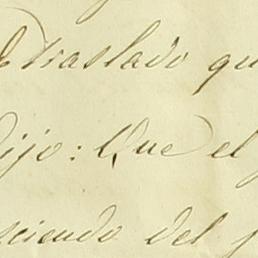 Traslado qu
Dijo: Que el
sciendo del